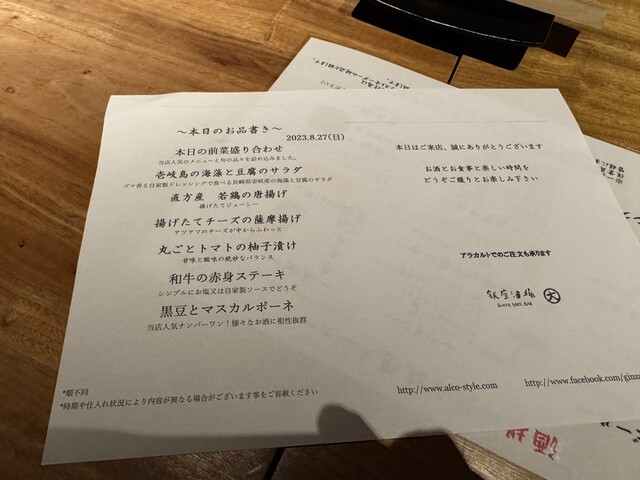 〜本日のお品書き〜
2023.8.27(日)
本日の前菜盛り合わせ
当店人気のメニューと旬の品々を詰め込みました。
壱岐島の海藻と豆腐のサラダ
ゴマ香る自家製ドレッシングで食べる長崎県壱岐産の海藻と豆腐のサラダ
直方産 若鶏の唐揚げ
揚げたてジューシー
揚げたてチーズの薩摩揚げ
アツアツのチーズが中からふわっと
丸ごとトマトの柚子漬け
甘味と酸味の絶妙なバランス
和牛の赤身ステーキ
シンプルにお塩又は自家製ソースでどうぞ
黒豆とマスカルポーネ
当店人気ナンバーワン！様々なお酒に相性抜群
*順不同
*時期や仕入れ状況により内容が異なる場合がございます事をご容赦ください
本日はご来店、誠にありがとうございます
お酒とお食事と楽しい時間を
どうぞご織りとお楽しみ下さい
アラカルトでのご注文も承ります
銀座酒場 大
GINZA SAKE BAR
http://www.alco-style.com
http://www.facebook.com/ginza
酒場